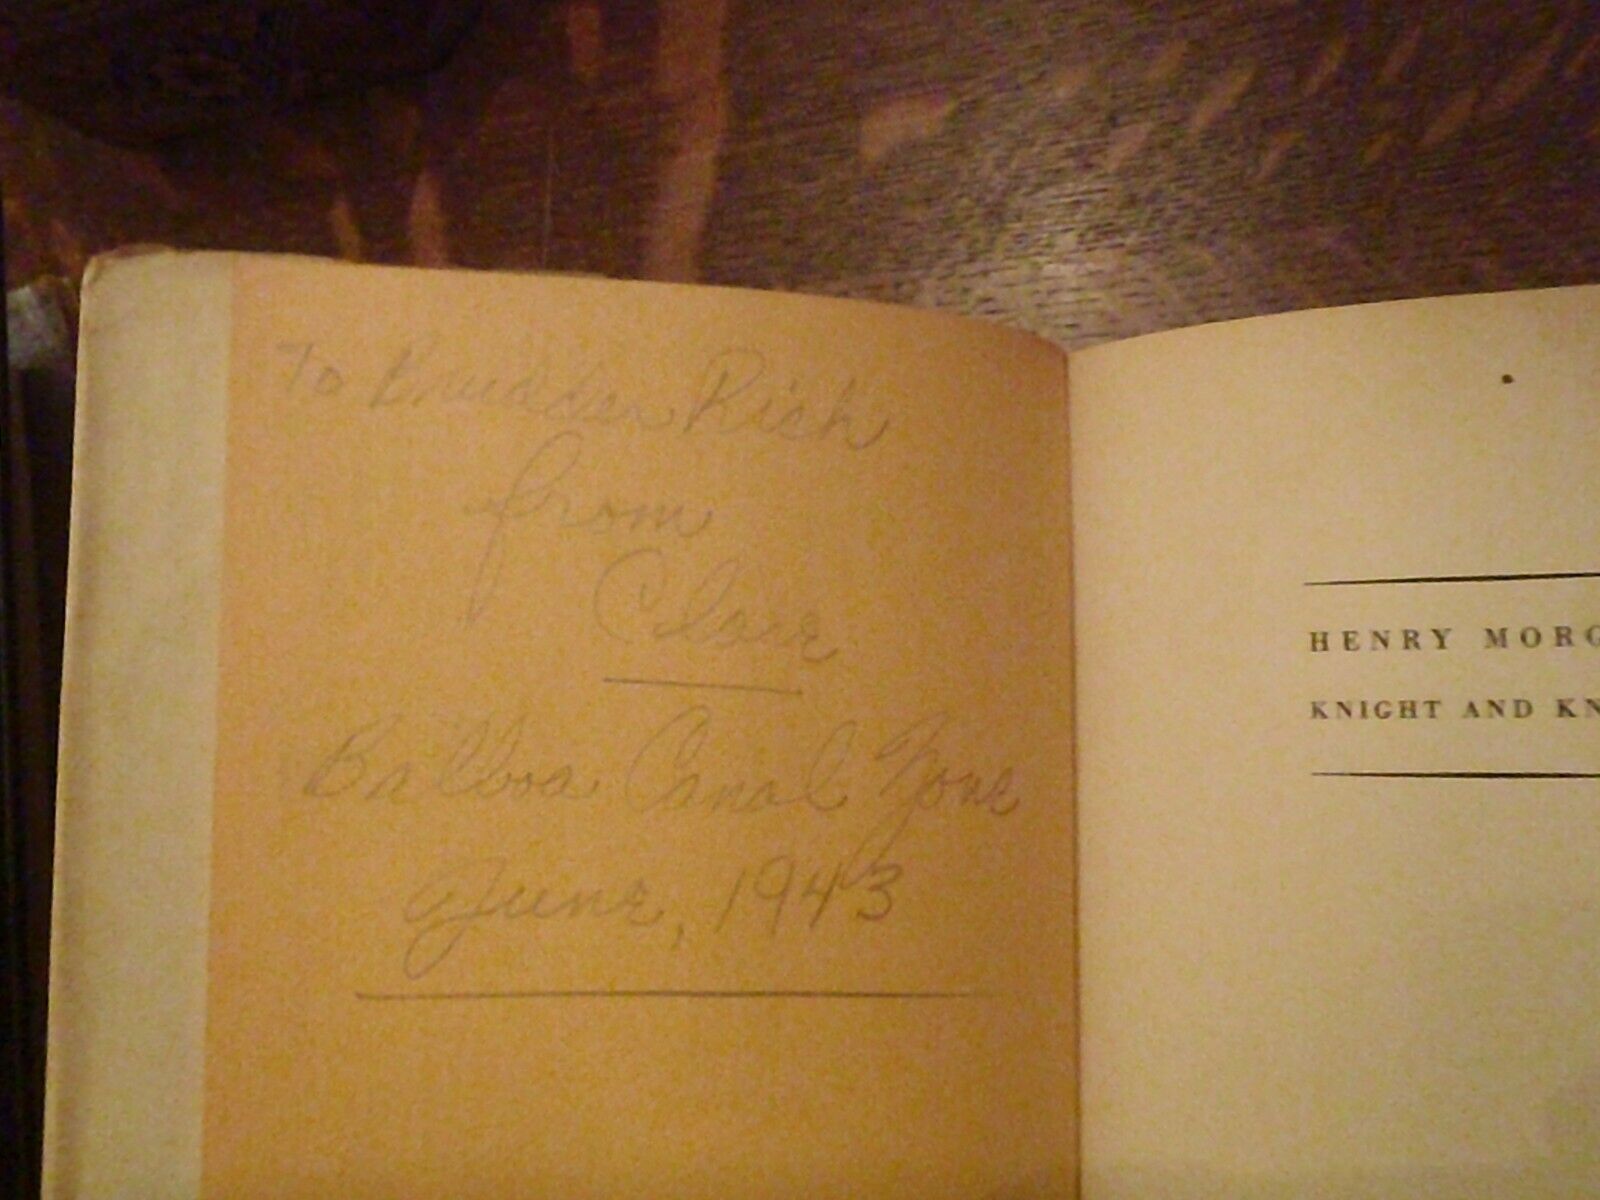 To Brudder Rich
from
Clair
Balboa Canal Zone
June, 1943
HENRY MORG
KNIGHT AND KN